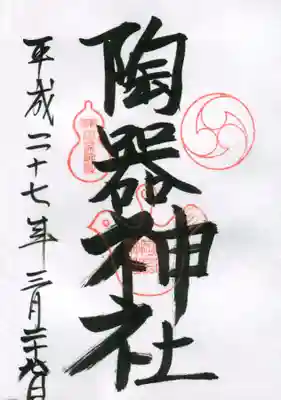 陶器神社
平成二十七年三月二十九日